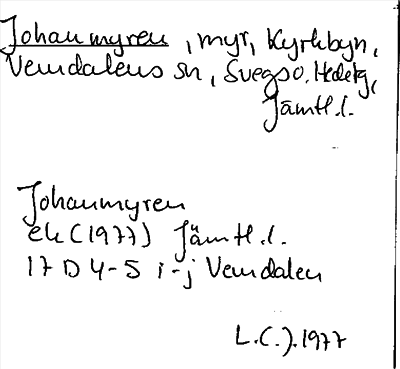 Johanmyren, myr, Kyrkbyn,
Vemdalens sn, Svegs o. Hedetg,
Jämtl.l.
Johanmyren
ek (1977) Jämtl.l.
17 D 4-5 i-j Vemdalen
L.C.J. 1977